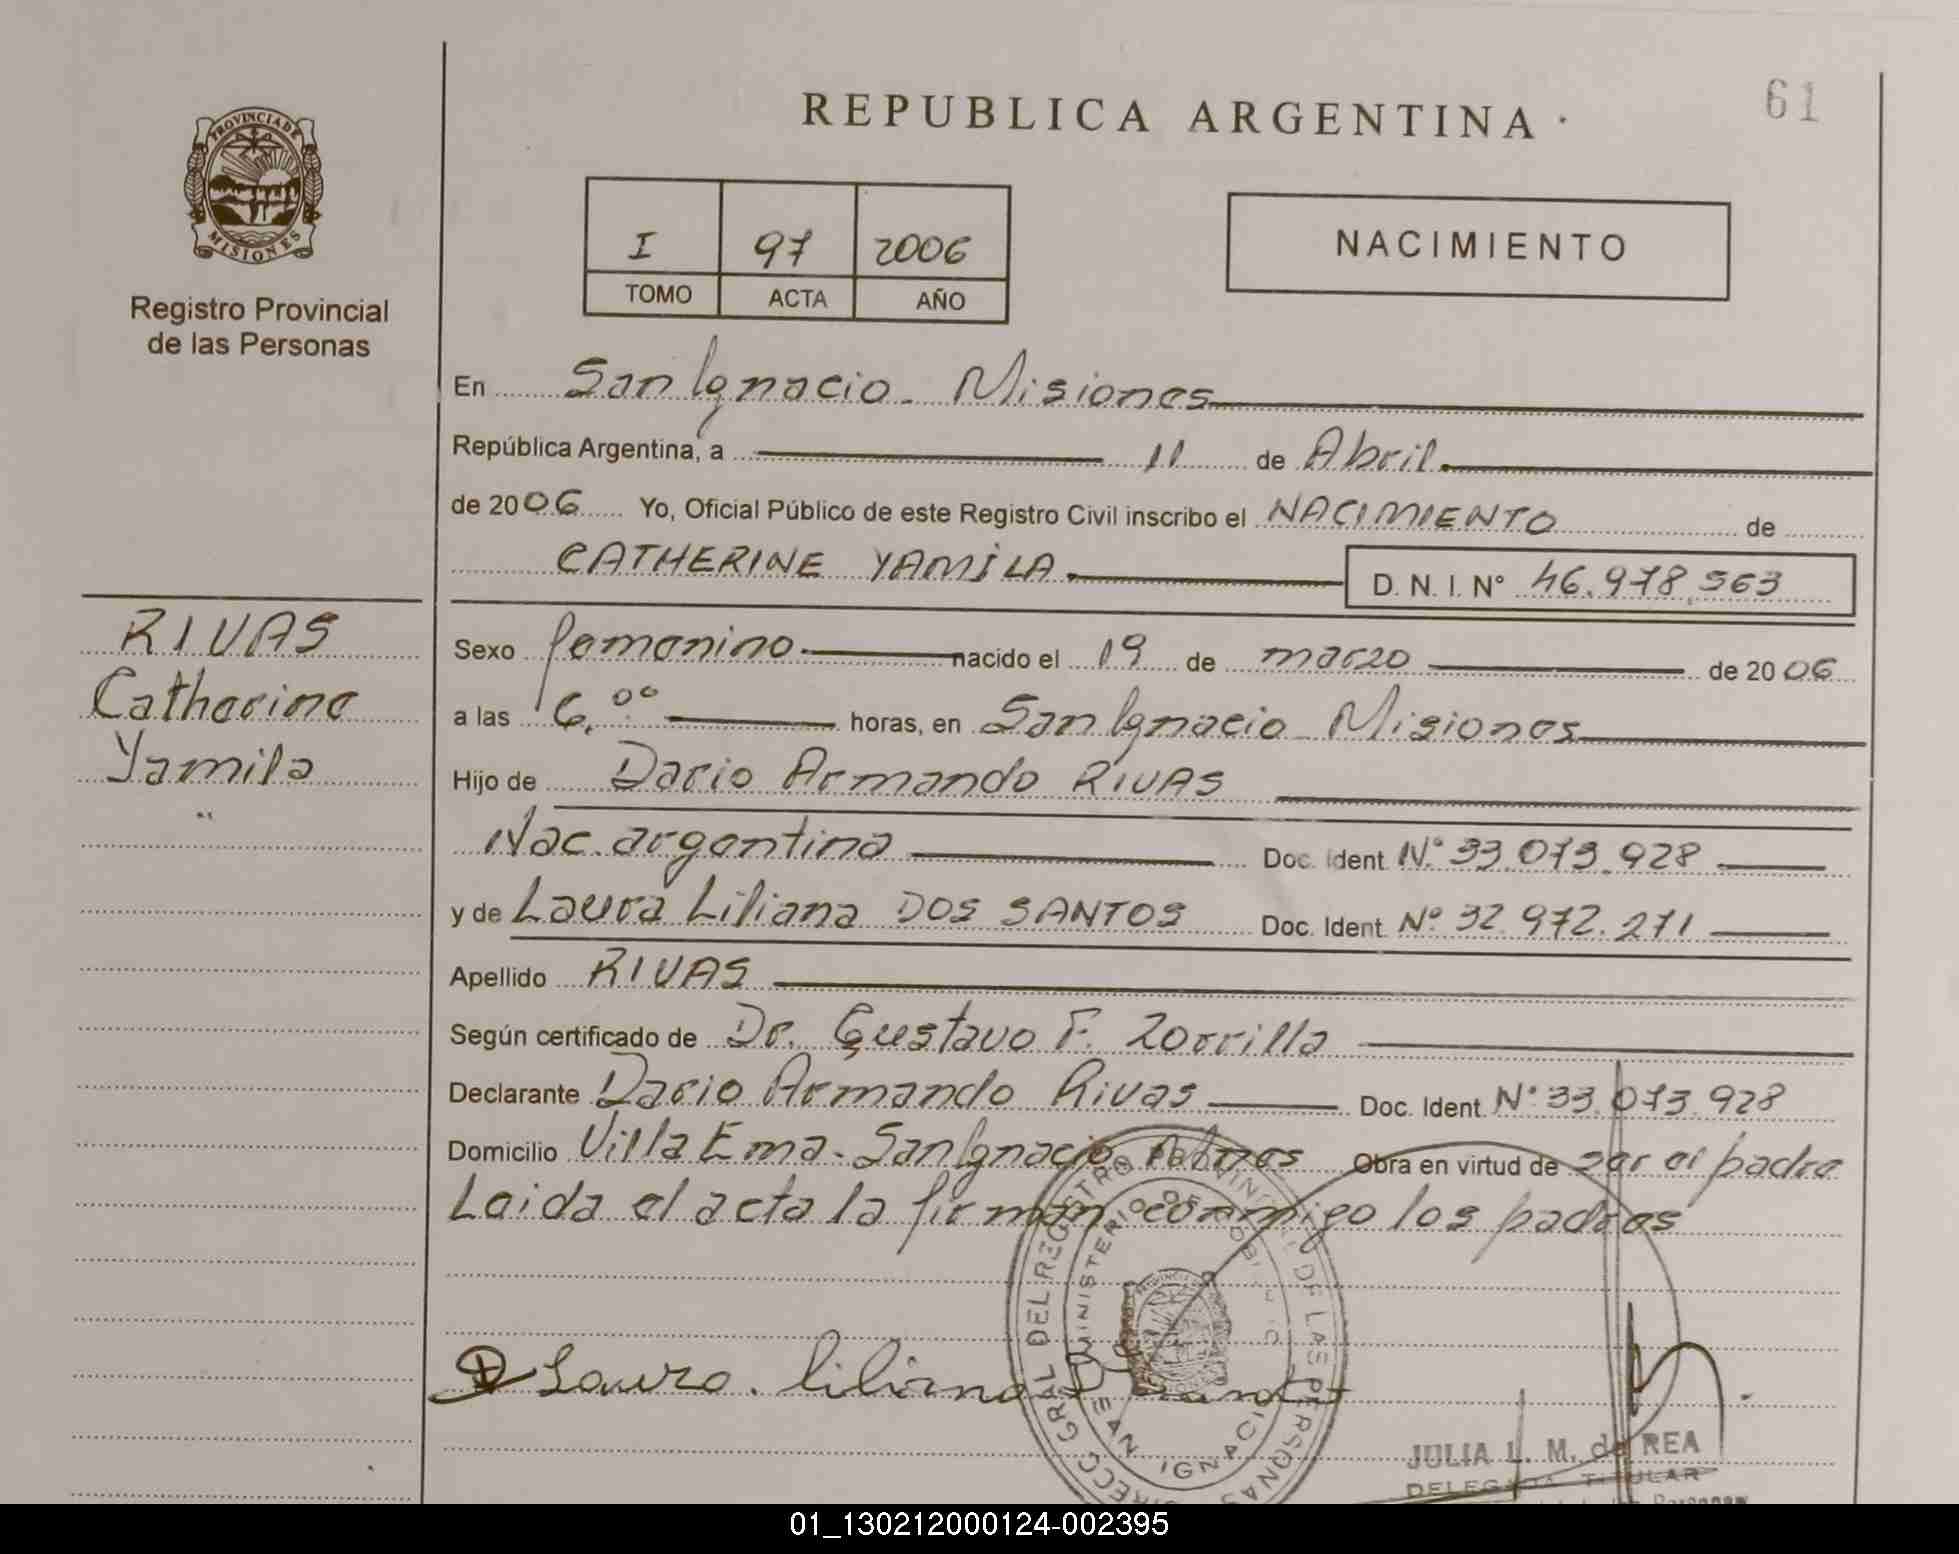 REPUBLICA ARGENTINA
61
PROVINCIA DE
MISIONES
Registro Provincial
de las Personas
I 97 2006
TOMO ACTA AÑO
NACIMIENTO
En San Ignacio - Misiones
República Argentina, a 11 de Abril
de 2006 Yo, Oficial Público de este Registro Civil inscribo el NACIMIENTO de
CATHERINE YAMILA D. N. I. N° 46.978.563
RIVAS
Catherine
Yamila
Sexo femenino nacido el 19 de marzo de 2006
a las 6.°° horas, en San Ignacio - Misiones
Hijo de Dario Armando RIVAS
Nac. argentina Doc. Ident. N° 33.073.928
y de Laura Liliana DOS SANTOS Doc. Ident. N° 32.972.271
Apellido RIVAS
Según certificado de Dr. Gustavo F. Zorrilla
Declarante Dario Armando Rivas Doc. Ident. N° 33.073.928
Domicilio Villa Ema - San Ignacio Obra en virtud de ser el padre
Leida el acta la firman conmigo los padres
Laura Liliana
DIRECC. GRAL DEL REGISTRO PROVINCIAL DE LAS PERSONAS
MINISTERIO DE GOBIERNO
SAN IGNACIO
JULIA L. M. de REA
DELEGADA TITULAR
01_130212000124-002395